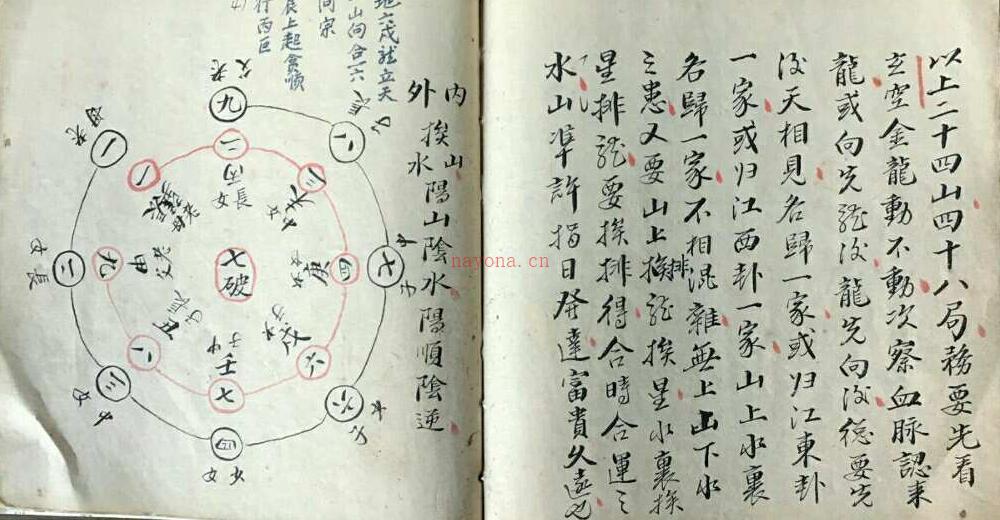 以上二十四山四十八局務要先看
玄空金龍動不動次察血脉認来
龍或向先龍後龍先向後總要先
後天相見名歸一家或归江東卦
一家或归江西卦一家山上水裏
名歸一家不相混雜無上山下水
之患又要山上排龍挨星水裏挨
星排龍要挨排得合時合運之
水山準許指日發達富貴久遠也
內挨山陽山陰水陽順陰逆
外水
地六戌龍立天
山向合一六
同宗
辰上起貪順
行丙巨
九
父老
八
七
中子
六
四
三
二
長女
一
二
丙
長女
三
四
庚
六
七
壬
中子
八
九
甲
一
七破
nayona.cn